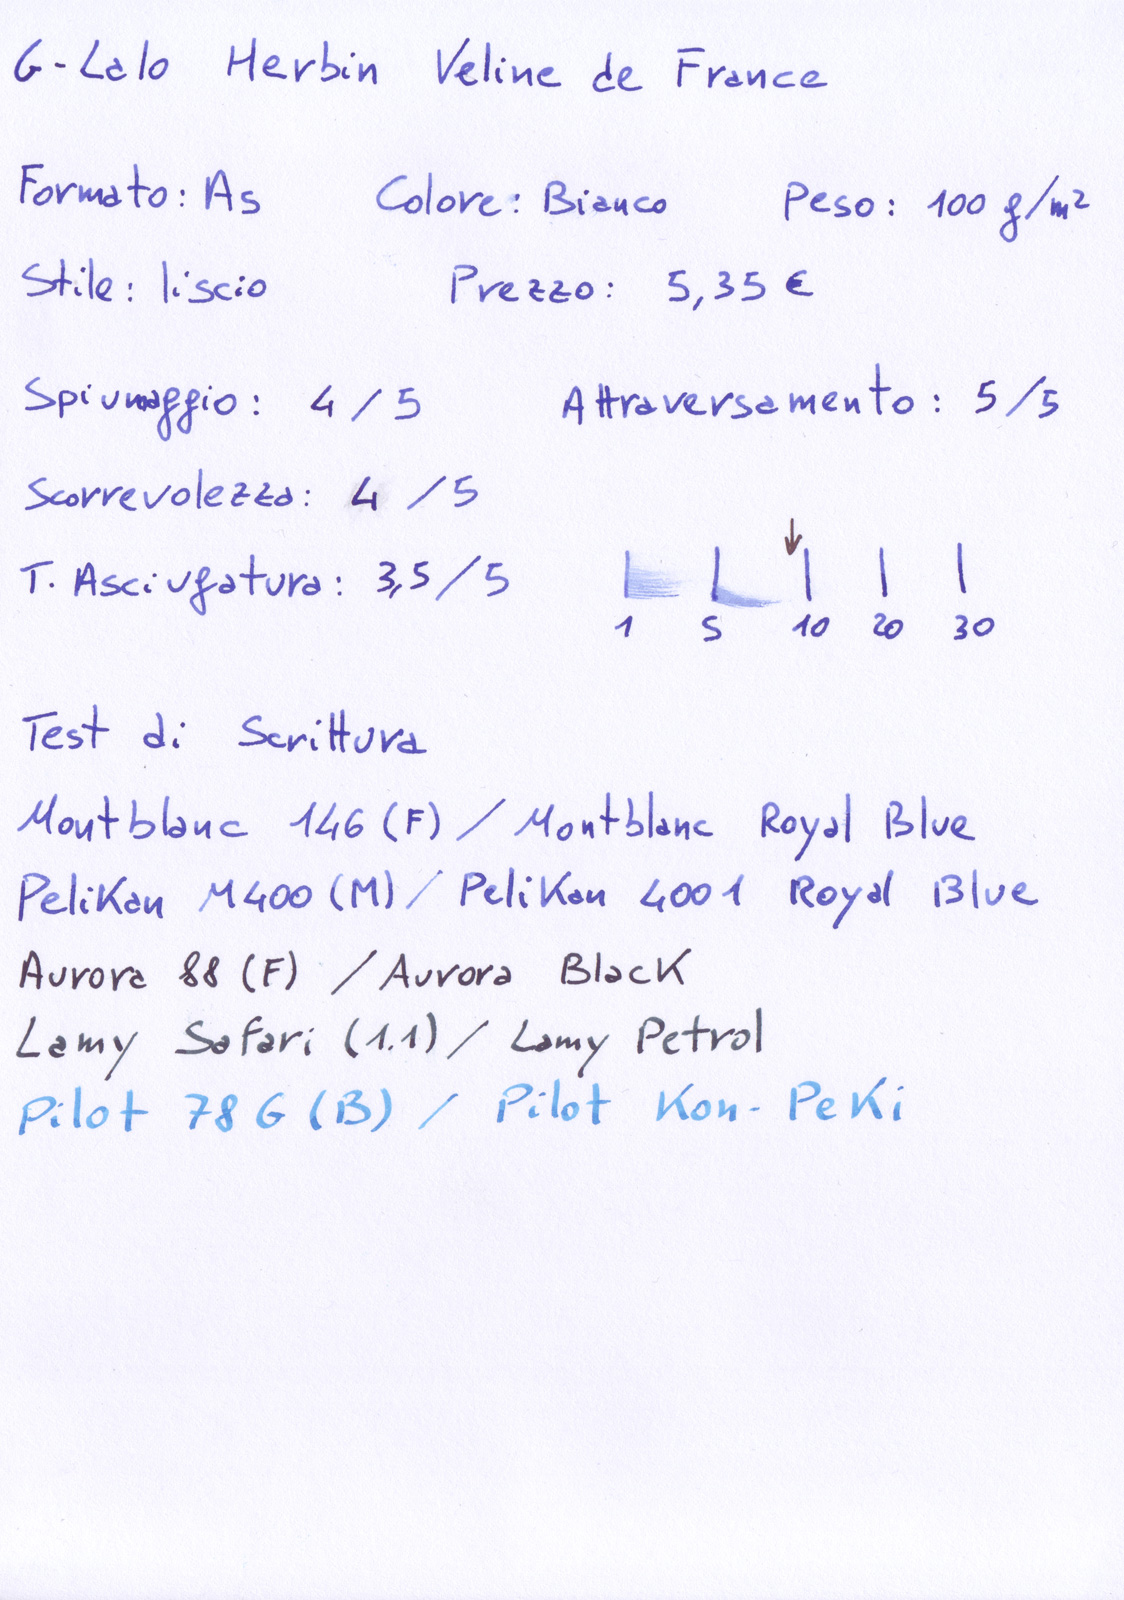 G-Lalo Herbin Veline de France
Formato: A5 Colore: Bianco Peso: 100 g/m²
Stile: liscio Prezzo: 5,35 €
Spiumaggio: 4/5 Attraversamento: 5/5
Scorrevolezza: 4/5
T. Asciugatura: 3,5/5
1 5 10 20 30
Test di Scrittura
Montblanc 146 (F) / Montblanc Royal Blue
Pelikan M400 (M) / Pelikan 4001 Royal Blue
Aurora 88 (F) / Aurora Black
Lamy Safari (1.1) / Lamy Petrol
Pilot 78G (B) / Pilot Kon-Peki